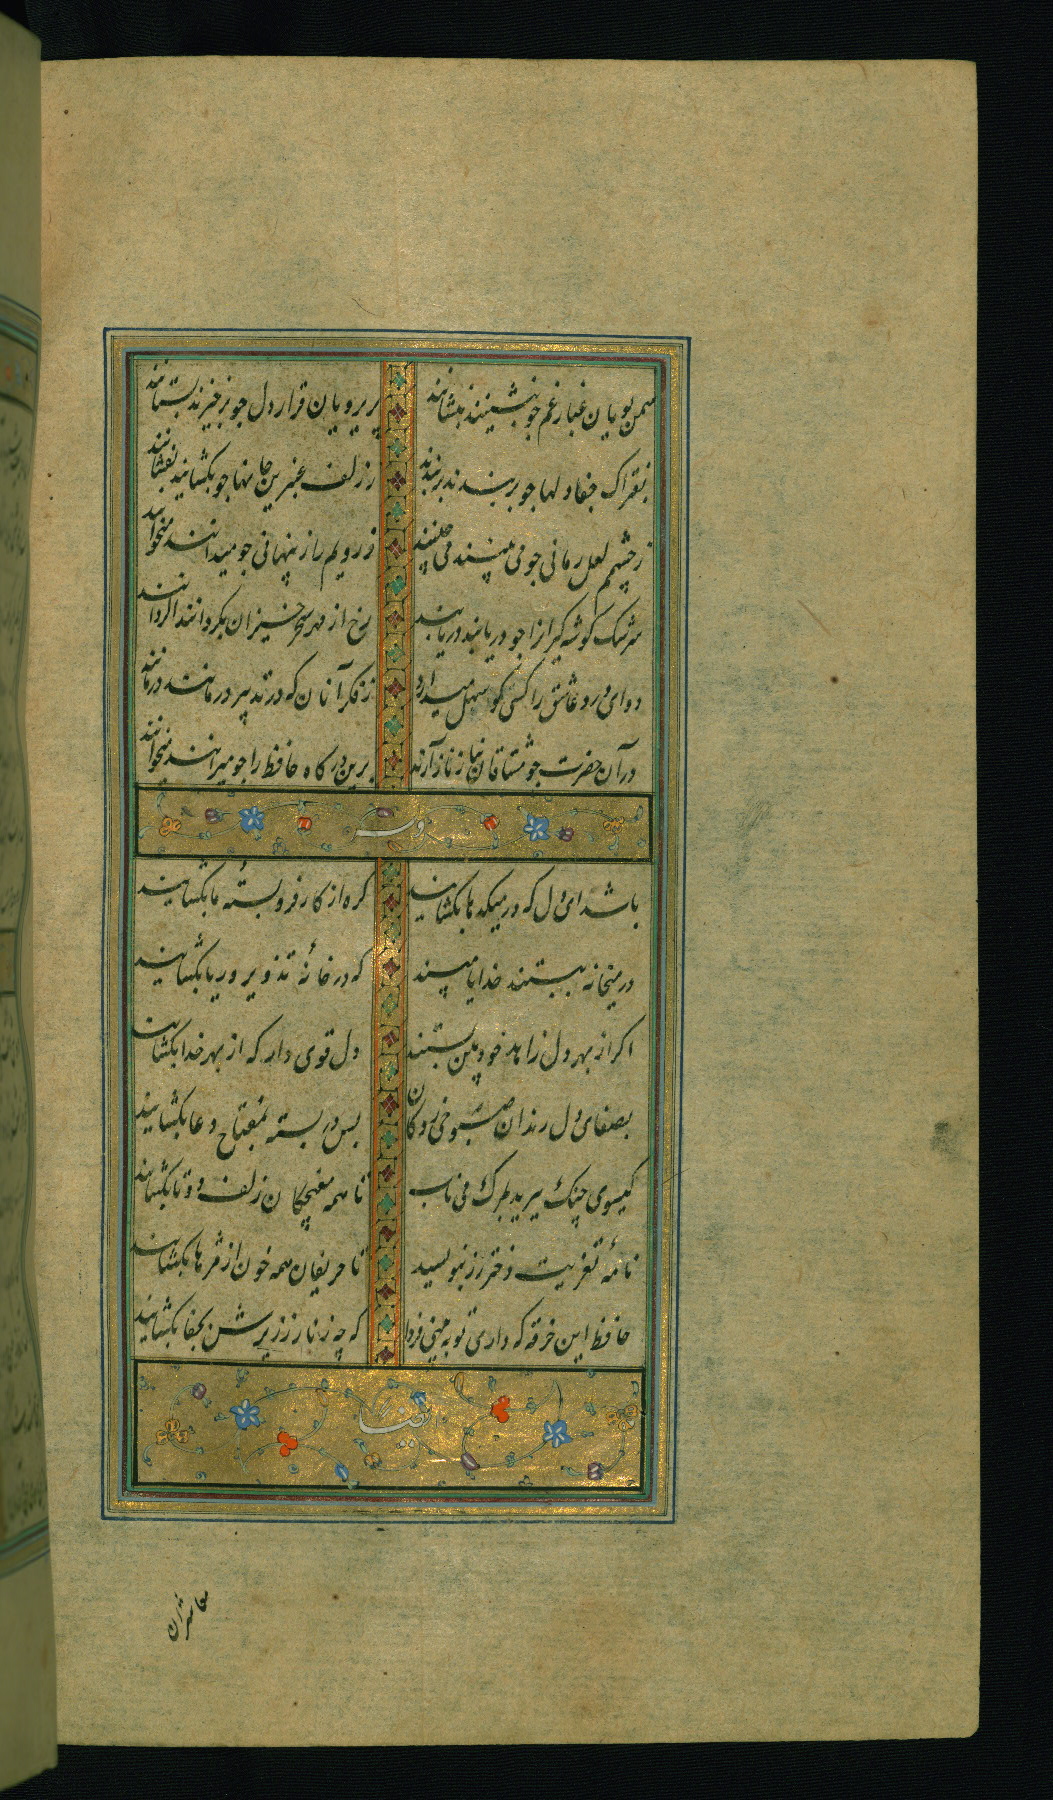 سمن بویان غبار غم چو بنشینند بنشانند پریرویان قرار دل چو برخیزند بستانند
بفتراک جفا دلها چو بربندند بربندند ز زلف عنبرین جانها چو بکشایند بفشانند
ز چشمم لعل رمانی چو می بینند می چینند ز رویم راز پنهانی چو میدانند میخوانند
سرشک کوشه کیرانرا چو دریابند دریابند رخ از مهر سحرخیزان نکردانند اکر دانند
دوای درد عاشق را کسی کو سهل میدارد ز فکر آنان که در تدبیر درمانند درمانند
در آن حضرت چو مشتاقان نیاز ناز آرند برین درکاه حافظ را چو میرانند میخوانند
وله
باشد ای دل که در میکده ها بکشایند کره از کار فروبستهٔ ما بکشایند
در میخانه ببستند خدایا مپسند که در خانهٔ تزویر و ریا بکشایند
اکر از بهر دل زاهد خودبین بستند دل قوی دار که از بهر خدا بکشایند
بصفای دل رندان صبوحی زدکان بس در بسته بمفتاح دعا بکشایند
کیسوی چنک ببرید بمرک می ناب تا همه مغبچکان زلف دوتا بکشایند
نامهٔ تعزیت دختر رز بنویسید تا حریفان همه خون از مژها بکشایند
حافظ این خرقه که داری تو ببینی فردا که چه زنار ز زیرش بجفا بکشایند
ایضا
معاشران